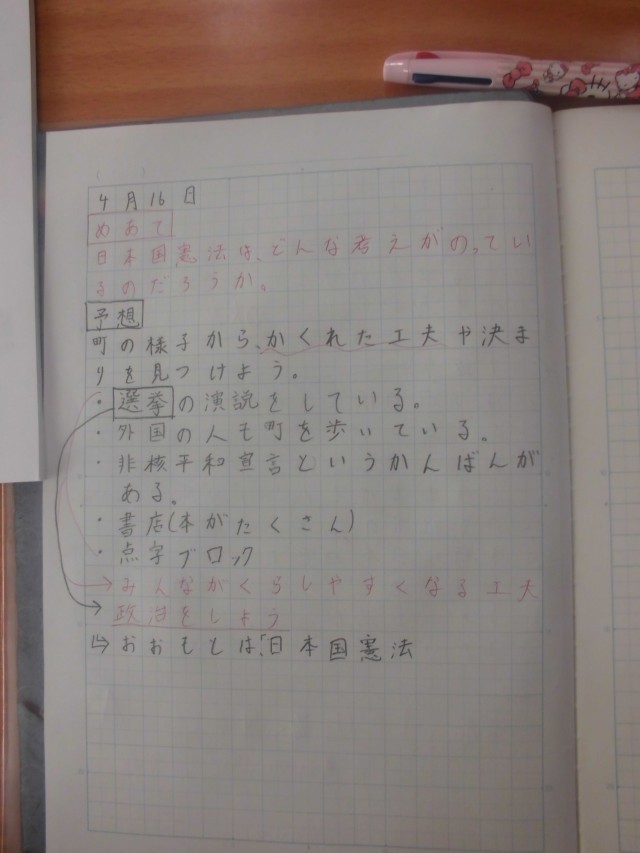 4月16日
めあて
日本国憲法は、どんな考えがのってい
るのだろうか。
予想
町の様子から、かくれた工夫や決ま
りを見つけよう。
・選挙の演説をしている。
・外国の人も町を歩いている。
・非核平和宣言というかんばんが
ある。
・書店(本がたくさん)
・点字ブロック
→みんながくらしやすくなる工夫
→政治をしよう
↳おおもとは、「日本国憲法